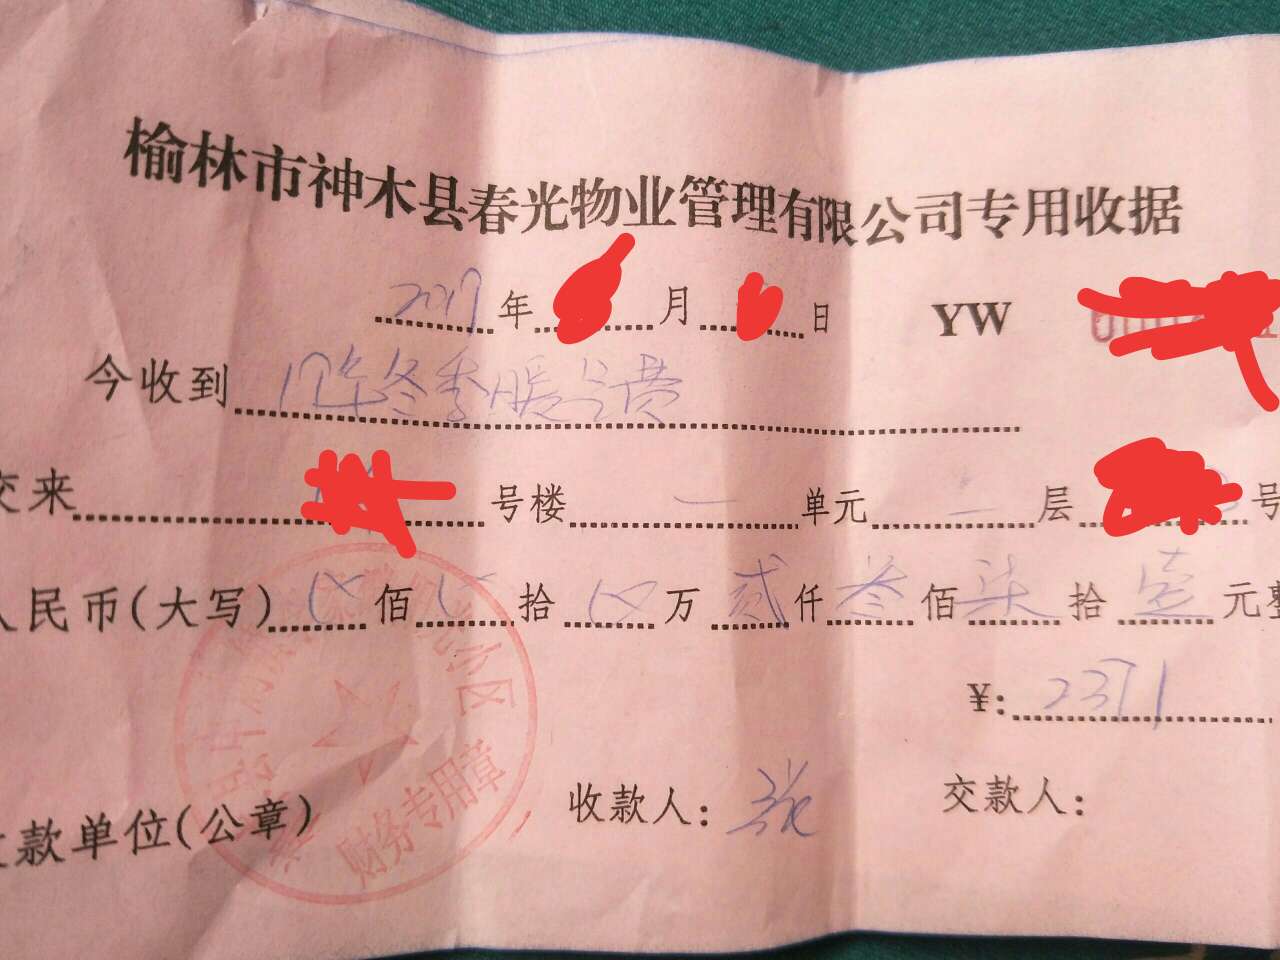 榆林市神木县春光物业管理有限公司专用收据
2017年 月 日 YW
今收到 17年冬季暖气费
交来 号楼 一 单元 一 层 号
人民币(大写) 佰 拾 万 贰 仟 叁 佰 柒 拾 壹 元整
¥: 2371
收款单位(公章) 收款人: 张 交款人:
财务专用章